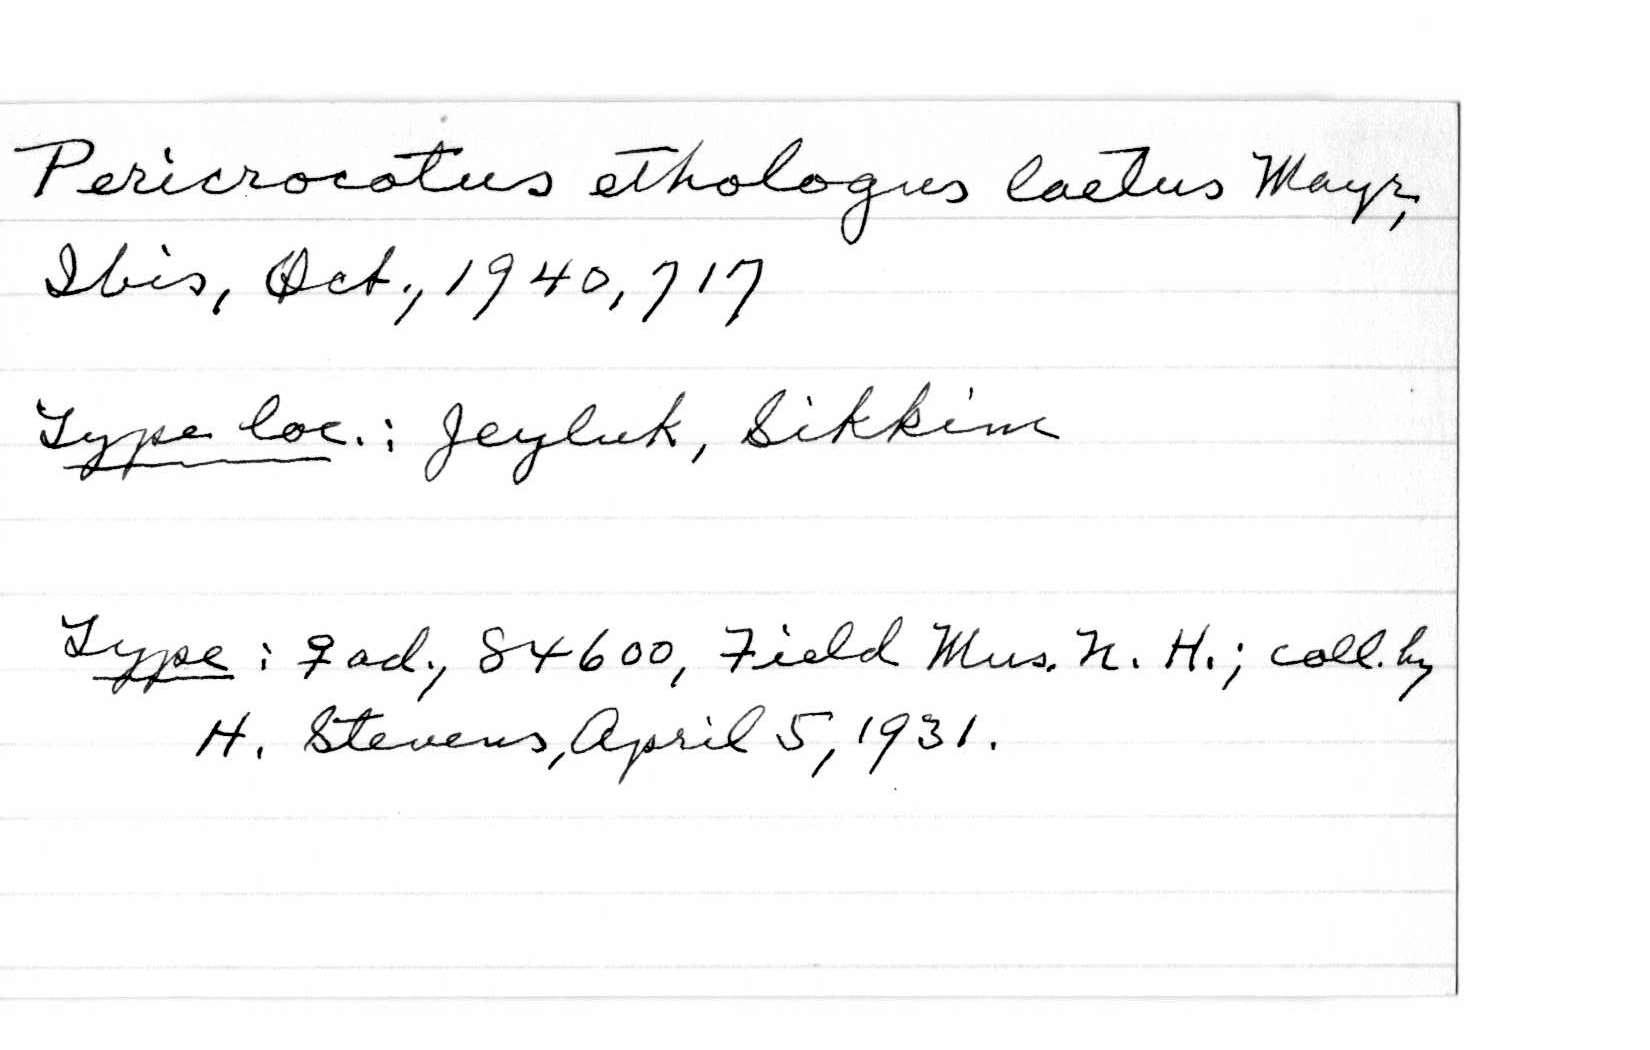 Pericrocotus ethologus laetus Mayr,
Ibis, Oct., 1940, 717
Type loc.: Jeyluk, Sikkim
Type: ♀ ad., 84600, Field Mus. N. H.; coll. by
H. Stevens, April 5, 1931.